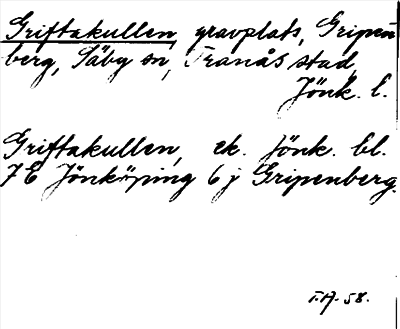 Griftakullen, gravplats, Gripen-
berg, Säby sn, Tranås stad,
Jönk. l.
Griftakullen, ek. Jönk. bl.
7E Jönköping 6 j Gripenberg.
T.A. 58.